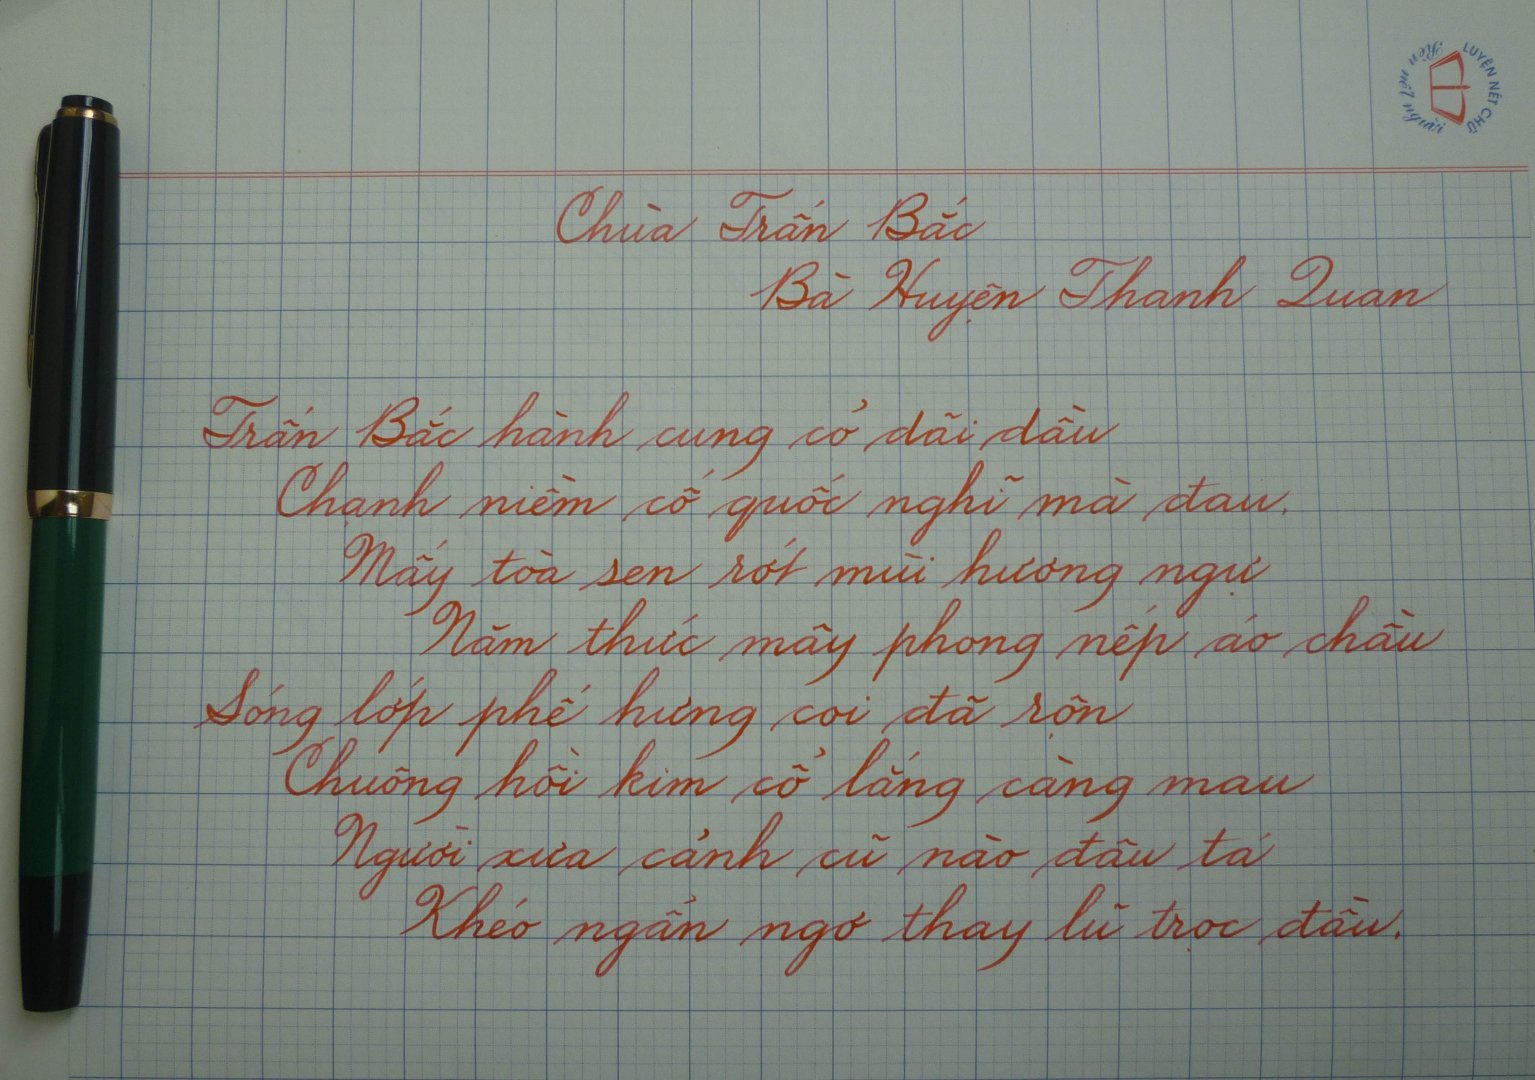 LUYỆN NÉT CHỮ
Rèn nết người
Chùa Trấn Bắc
Bà Huyện Thanh Quan
Trấn Bắc hành cung cỏ dãi dầu
Chạnh niềm cố quốc nghĩ mà đau.
Mấy tòa sen rớt mùi hương ngự
Năm thức mây phong nếp áo chầu
Sóng lớp phế hưng coi đã rộn
Chuông hồi kim cổ lắng càng mau
Người xưa cảnh cũ nào đâu tá
Khéo ngẩn ngơ thay lũ trọc đầu.